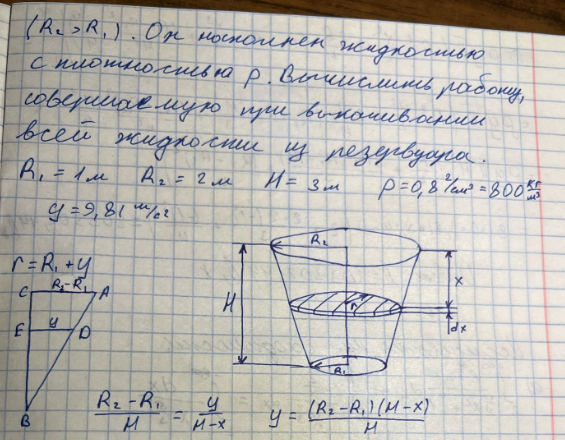 (R₂ > R₁). Он наполнен жидкостью
с плотностью ρ. Вычислить работу,
совершаемую при выкачивании
всей жидкости из резервуара.
R₁ = 1м R₂ = 2м H = 3м ρ = 0,8 г/см³ = 800 кг/м³
g = 9,81 м/с²
r = R₁ + y
R₂ - R₁
C A
E y D
B
R₂
H x
r
dx
R₁
(R₂ - R₁)/H = y/(H - x) y = (R₂ - R₁)(H - x)/H